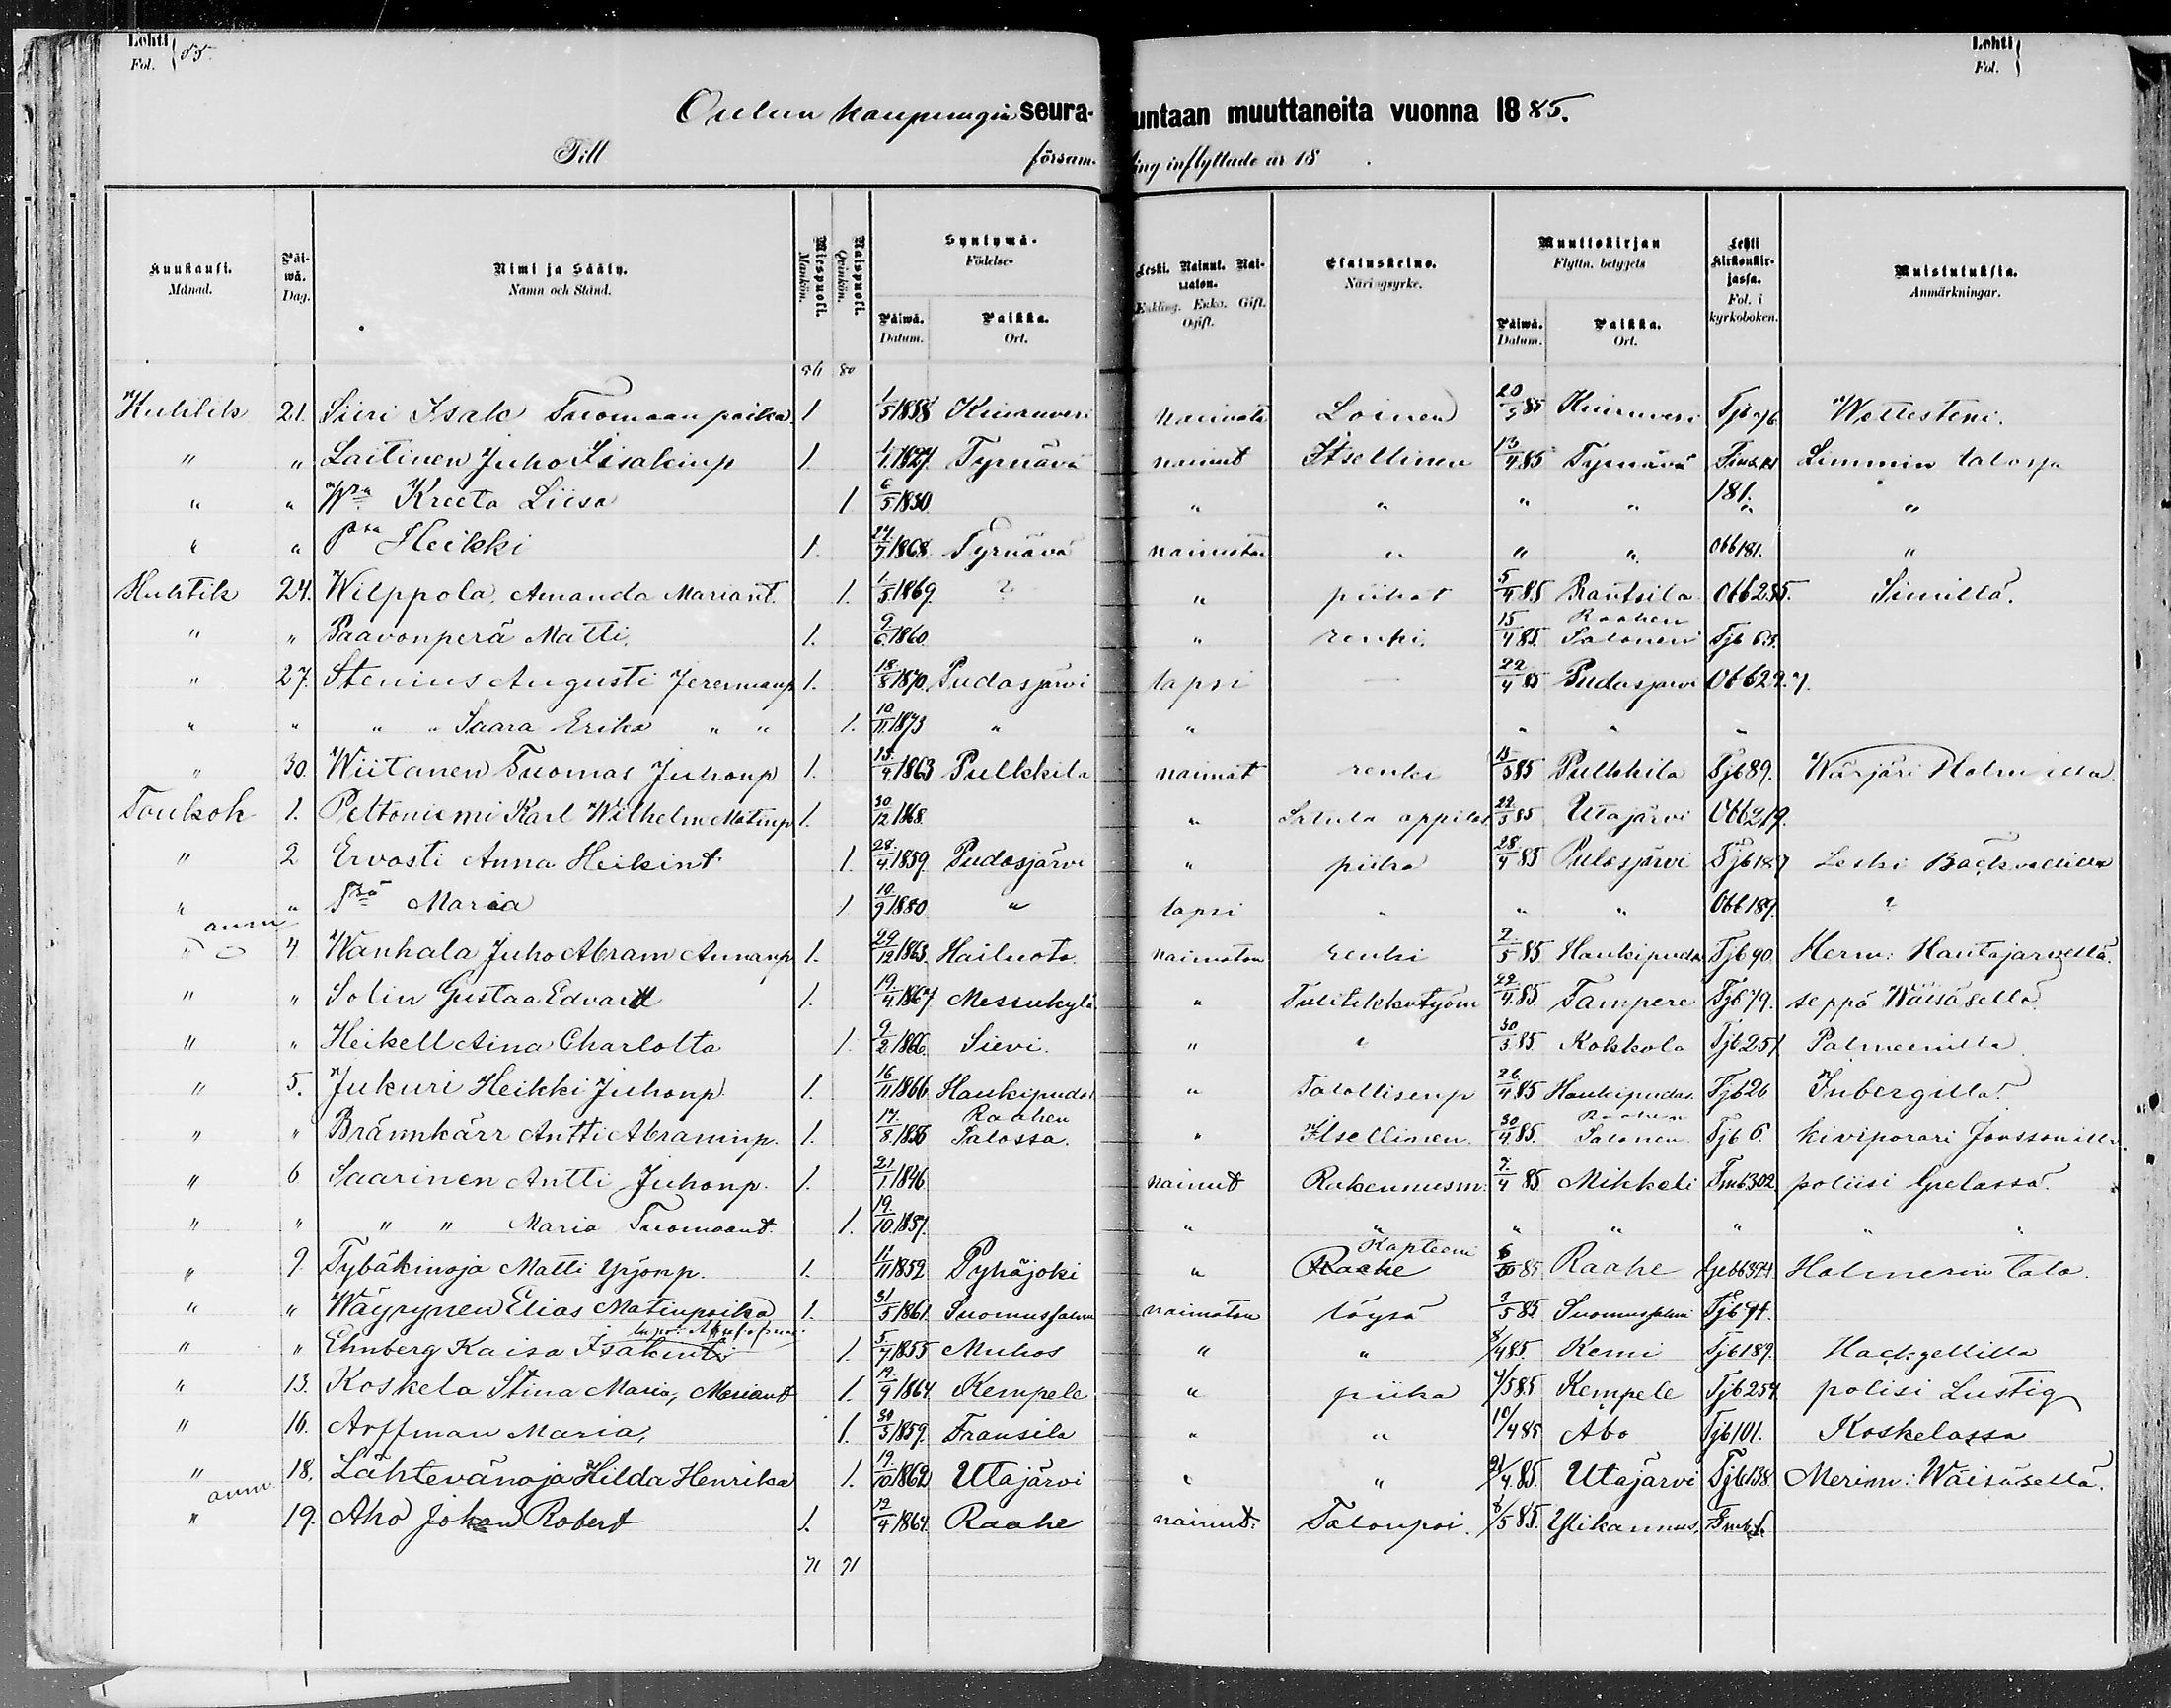 Lehti Fol. 55. Lehti Fol.
Oulun kaupungin seura-kuntaan muuttaneita vuonna 1885.
Till församling inflyttade år 18
Kuukausi. Månad. Päiwä. Dag. Nimi ja Sääty. Namn och Stånd. Miespuoli. Mankön. Naispuoli. Qvinkön. Syntymä- Födelse- Päiwä. Datum. Paikka. Ort. Leski. Nainut. Naimaton. Enkling. Enka. Gift. Ogift. Elatuskeino. Näringsyrke. Muuttokirjan Flyttn. betygets Päiwä. Datum. Paikka. Ort. Lehti kirkonkirjassa. Fol. i kyrkoboken. Muistutuksia. Anmärkningar.
Huhtik 21. Siiri Isak Tuomaanpoika 1 1/5 1858 Kiuruvesi naimato Loinen 20/3 85 Kiuruvesi Wettesteni.
" " Laitinen Juho Iisakinp 1. 1/1 1827. Tyrnävä nainut Itsellinen 13/4 85 Tyrnävä Limmin talossa
" " Wmo Kreeta Liisa 1 6/5 1830 " " " " 181. "
" " psa Heikki 1. 24/7 1868. Tyrnävä naimaton " " " Obb 181. "
Huhtik 24. Wilppola, Amanda Mariant. 1. 1/5 1869. ? " piikat 5/4 85 Rantsila Obb 285. Simillä.
" " Paavonperä Matti. 1. 9/6 1860. " renki. 15/4 85. Raahen Salonen Tjb 63.
" 27. Stenius Augusti Jeremianp 1. 18/8 1870. Pudasjärvi lapsi — 22/4 85 Pudasjärvi Obb 229.
" " " " Saara Erika " " 1. 10/11 1873 " " " " "
" 30. Wiitanen Tuomas Juhonp 1. 15/4 1863 Pulkkila naimat renki 15/3 85 Pulkkila Tjb 89. Wärjäri Holmilla.
Toukok 1. Peltoniemi Karl Wilhelm Matinp 1. 30/12 1868. " Satula oppilas 22/3 85 Utajärvi Obb 219.
" 2 Ervasti Anna Heikint 1. 28/4 1859. Pudasjärvi " piika 28/4 85 Pudasjärvi Tjb 187 Leski Bäckvallilla
" " Trä Maria 1 10/9 1880 " lapsi " " " Obb 189. "
anm " 4. Wanhala Juho Abram Annanp 1. 29/12 1863. Hailuoto naimaton renki 2/5 85. Haukipudas Tjb 90. Herm: Hautajärvellä.
" " Solin Gustaa Edvard 1. 19/4 1867. Messukylä " Tulitikkutyöm 22/4 85. Tampere Tjb 79. seppä Wäisäsellä
" " Heikell Aina Charlotta 1. 9/2 1866. Sievi. " " 30/3 85. Kokkola Tjb 251 Palmeinilla
" 5. Jukuri Heikki Juhonp 1. 16/11 1866 Haukipudas " Talollisenp 26/4 85 Haukipudas Tjb 26 Inbergillä.
" " Brännkärr Antti Abraminp. 1. 17/8 1856 Raahen Salossa. " Itsellinen. 30/4 85. Raahen Salonen Tjb 6. kiviporari Jonssonilla
" 6 Saarinen Antti Juhonp. 1. 21/1 1846 nainut Rakennusm: 7/4 85. Mikkeli Tmb 302 poliisi Grelassa.
" " " " Maria Tuomaant. 1. 19/10 1857. " " " " " " "
" 9. Tybäkinoja Matti Yrjönp. 1. 11/11 1852 Pyhäjoki " Raahe Kapteeni 6/ 85 Raahe Holmerin talo.
" " Wäyrynen Elias Matinpoika 1. 31/5 1861. Suomussalmi naimaton löysä 3/5 85. Suomussalmi Tjb 94.
" " Ehnberg Kaisa Isakinti 1. 5/7 1855 Muhos " " 8/4 85. Kemi Tjb 189. Hackzellilla
" 13. Koskela Stina Maria, Mariant 1. 12/9 1864. Kempele " piika 4/5 85. Kempele Tjb 254 polisi Lustig
" 16. Arffman Maria, 1. 30/3 1859. Fransila " " 10/4 85 Åbo Tjb 101. Koskelassa
" 18. Lähtevänoja Hilda Henrika 1. 19/10 1862 Utajärvi " " 21/4 85. Utajärvi Tjb 138. Merim: Wäisäsellä.
anm " 19. Aho Johan Robert 1. 12/4 1864. Raahe nainut. Talonpoi. 8/5 85. Ylikannus,
71 71